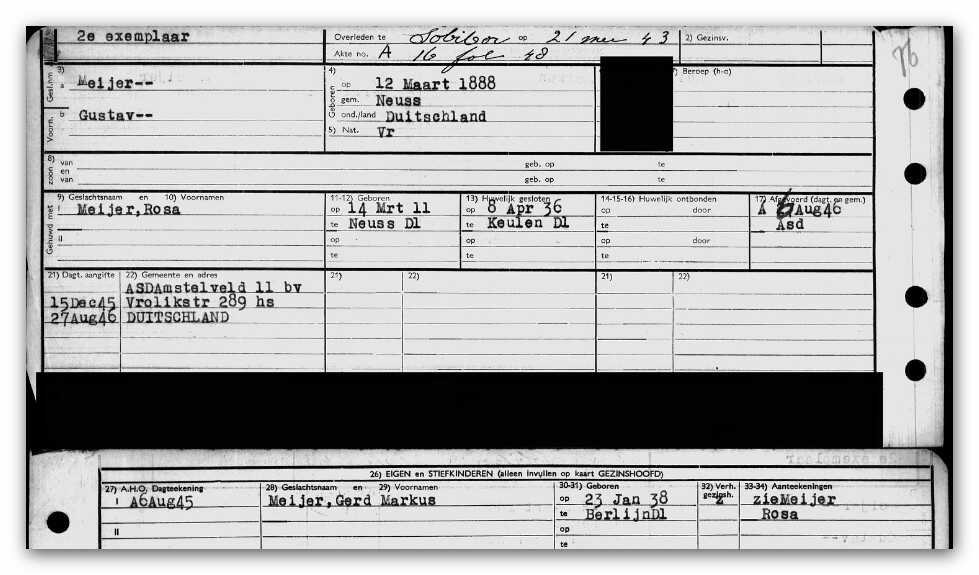 2e exemplaar
Overleden te Sobibor op 21 mei 43
Akte no. A 16 fol 48
2) Gezinsv.
76
Gesl.nm
3)
a Meijer--
Voorn.
b Gustav--
4)
Geboren
op 12 Maart 1888
gem. Neuss
ond./land Duitschland
5) Nat. Vr
Beroep (h-o)
8)
zoon
van
en
van
geb. op te
geb. op te
Gehuwd met
9) Geslachtsnaam en 10) Voornamen
I Meijer,Rosa
II
11-12) Geboren
op 14 Mrt 11
te Neuss Dl
op
te
13) Huwelijk gesloten
op 8 Apr 36
te Keulen Dl
op
te
14-15-16) Huwelijk ontbonden
op door
te
op door
te
17) Afgevoerd (dagt. en gem.)
A 6 Aug46
Asd
21) Dagt. aangifte
22) Gemeente en adres
ASDAmstelveld 11 bv
15Dec45 Vrolikstr 289 hs
27Aug46 DUITSCHLAND
21) 22)
21) 22)
26) EIGEN en STIEFKINDEREN (alleen invullen op kaart GEZINSHOOFD)
27) A.H.O. Dagteekening
I A6Aug45
II
28) Geslachtsnaam en 29) Voornamen
Meijer,Gerd Markus
30-31) Geboren
op 23 Jan 38
te BerlijnDl
op
te
32) Verh.
gezinsh.
z
33-34) Aanteekeningen
zieMeijer
Rosa